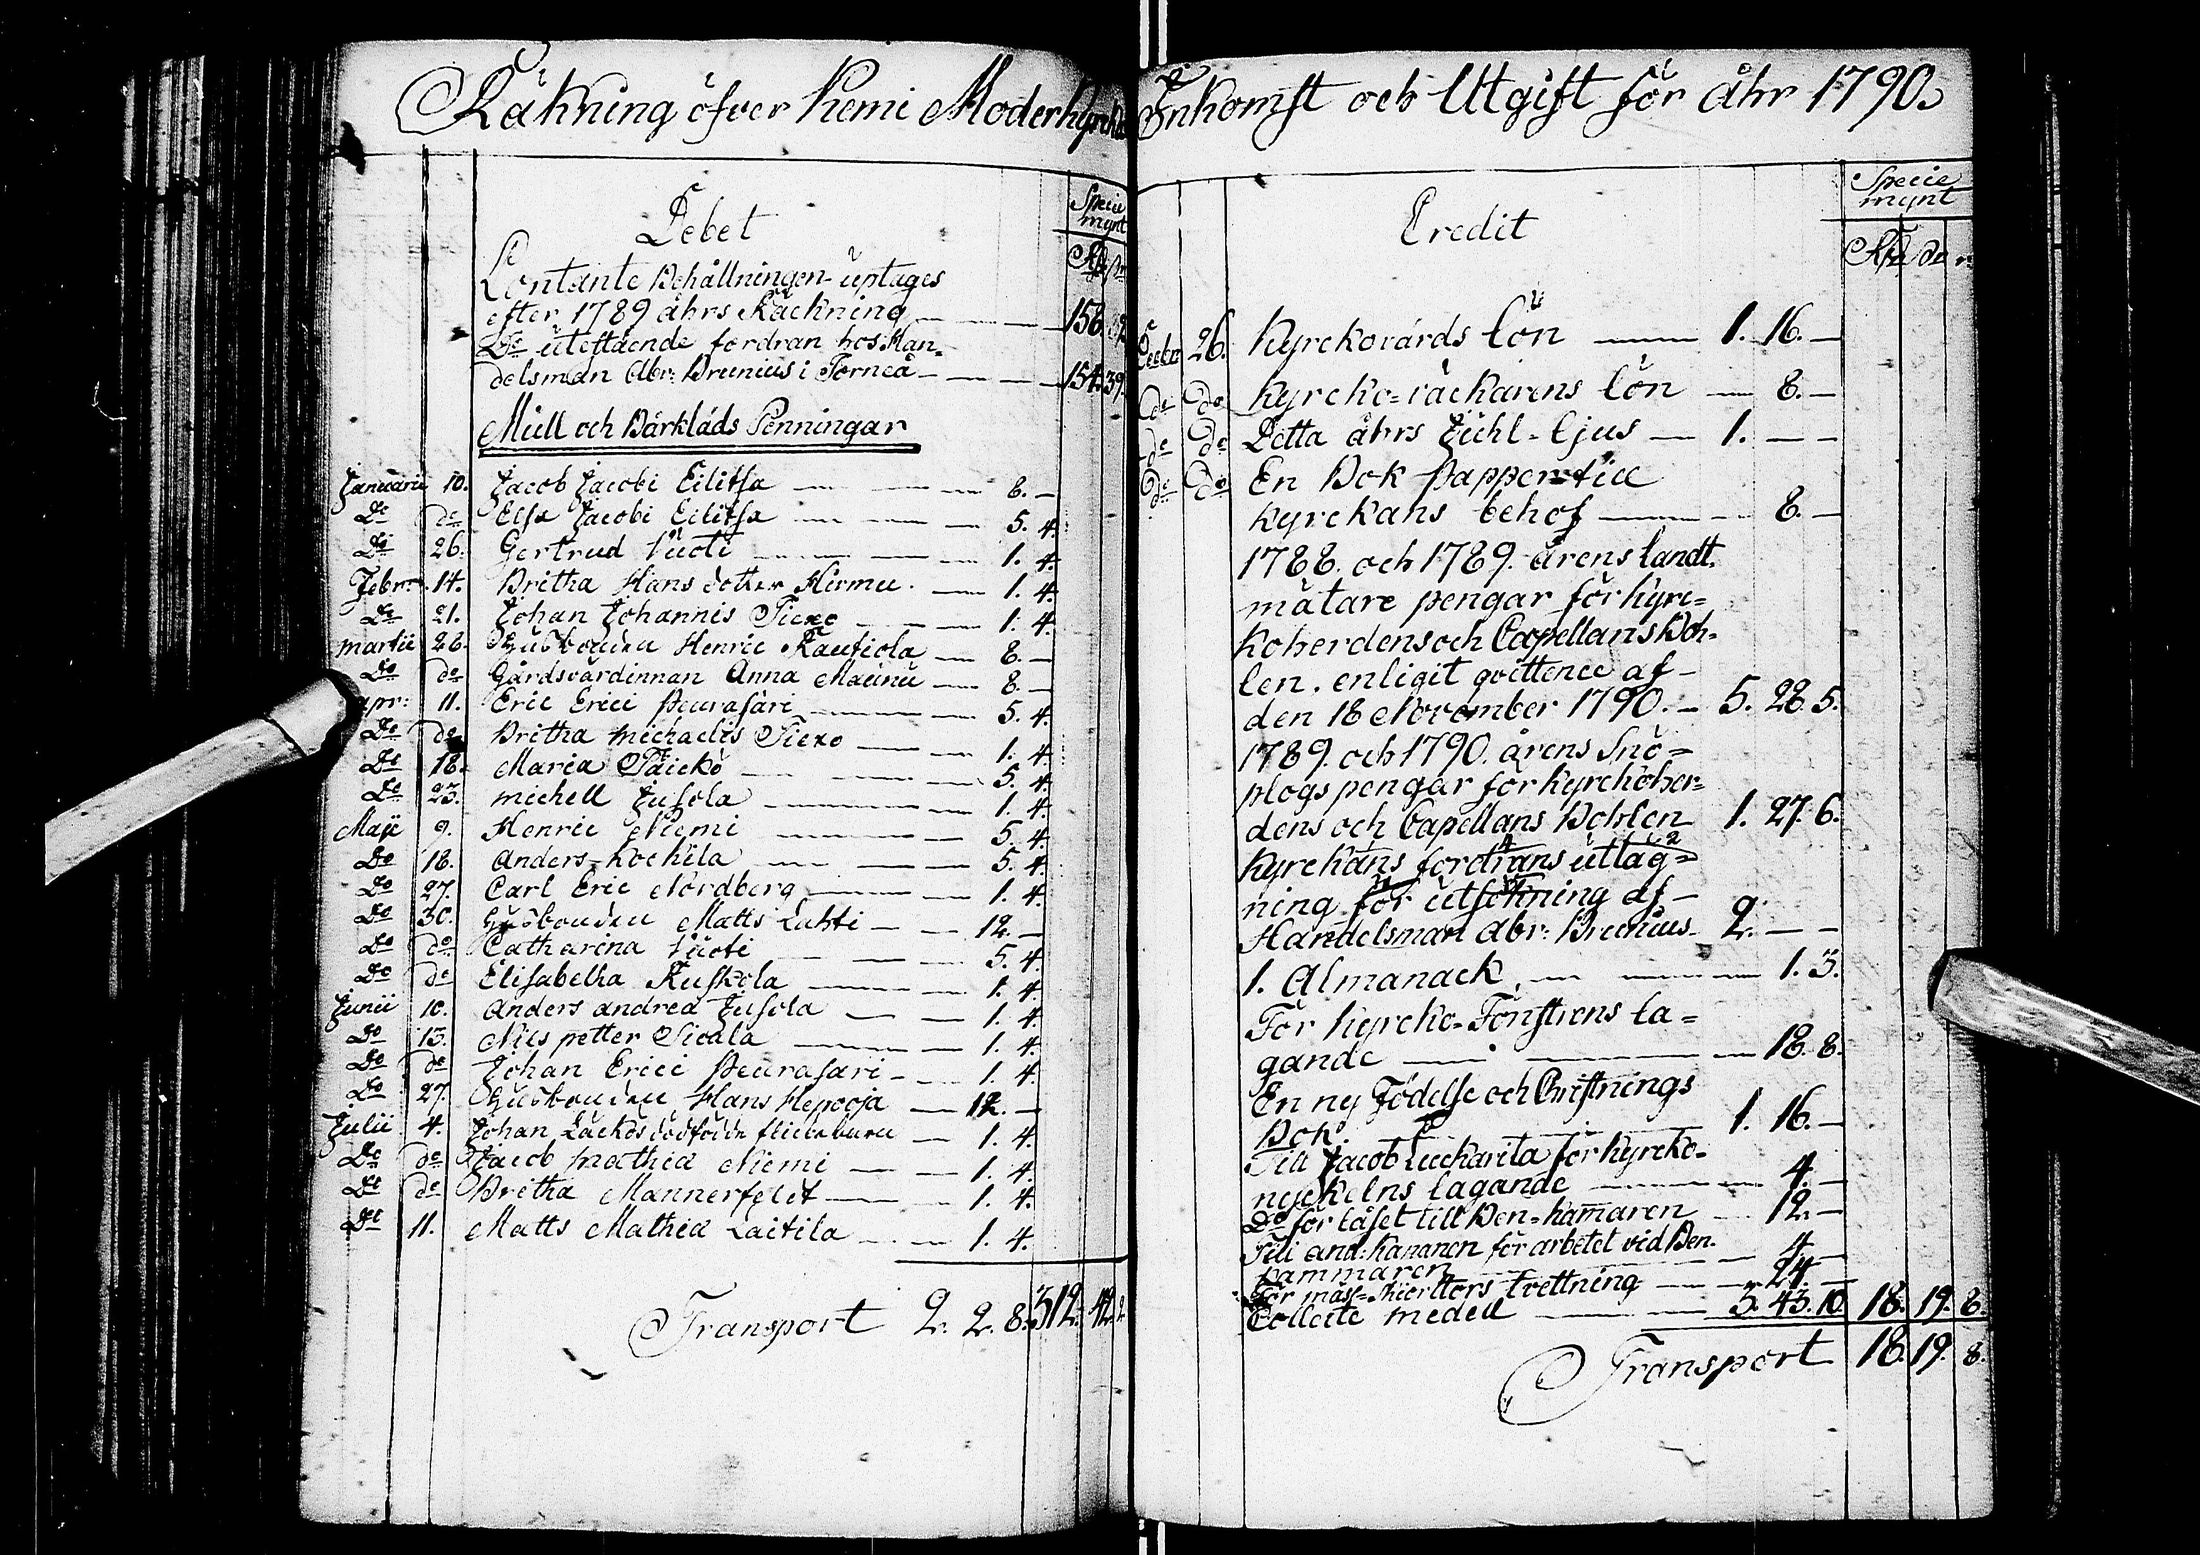 Räkning öfver Kemi Moderkyrckas Inkomst och Utgift för åhr 1790.
Debet
Specie
mynt
Contante Behållningen uptages
efter 1789 åhrs Räckning — — 158.
Do utestående fordran hos Han=
delsman Abr: Brunius i Torneå — — — 154. 39.
Mull och Bårkläds Penningar
Januarii 10. Jacob Jacobi Eilitsa — — — 8. —
Do do Elsa Jacobi Eilitsa — — — 5. 4.
Do 26. Gertrud Vuoti — — — 1. 4.
Febr: 14. Britha Hans dotter Hirmu — 1. 4.
Do 21. Johan Johannis Tiexo — — 1. 4.
Martii 28. Husbonden Henric Rautiola — 8. —
Do do Gårdsvärdinnan Anna Maunu — 8. —
apr: 11. Eric Erici Peurasari — — 5. 4.
Do do Britha Michaelis Tiexo — — 1. 4.
Do 18. Maria Päickö — — — 5. 4.
Do 23. Michell Jusola — — — 1. 4.
Maji 9. Henric Niemi — — — 5. 4.
Do 18. Anders Kockila — — — 5. 4.
Do 27. Carl Eric Nordberg — — 1. 4.
Do 30. Husbonden Matts Lahti — — 12. —
Do do Catharina Vuoti — — 5. 4.
Do de Elisabetha Ruskola — — 1. 4.
Junii 10. Anders Andreæ Jusola — — 1. 4.
Do 13. Nils petter Sivala — — 1. 4.
Do de Johan Erici Peurasari — — 1. 4.
Do 27. Husbonden Hans Hepooja — 12. —
Julii 4. Johan Lackos dödfödde flickebarn — 1. 4.
Do de Jacob Mathiæ Niemi — — 1. 4.
Do de Britha Mannerfeldt — — 1. 4.
Do 11. Matts Mathiæ Laitila — — 1. 4.
Transport 2. 2. 8. 312. 42.
Credit
Specie
mynt
Decbr 26. Kyrckovärds Lön — 1. 16. —
do do Kyrcko=väckarens Lön — 8. —
do do Detta åhrs Juhl-Ljus — 1. — —
do do En Bok Papper till
Kyrckans behof — — 8. —
1788. och 1789. årens landt.
mätare pengar för Kyrc=
koherdens och Capellans Boh=
len. enligit qvittence af
den 18 November 1790. — 5. 28. 5.
1789. och 1790. årens Snö=
plogs pengar för Kyrckoher=
dens och Capellans Bohlen 1. 27. 6.
Kyrckans fordrans utläg=
ning för utsökning af —
Handelsman Abr: Brunius — 2. — —
1. Almanack — — 1. 3.
För Kyrcko-Fönstrens la=
gande — — — 18. 8.
En ny Födelse och Christnings
Bok. — — 1. 16. —
Till Jacob Luckarila för Kyrcko=
nyckelns lagande — — 4. —
Do för låset till Ben=kamaren — 12. —
Till And: Kananen för arbetet vid Ben.
kammaren — — 4 —
För mäss-skiortors tvettning — 24. —
Collecte medell — — 3. 43. 10. 18. 19. 8.
Transport 18. 19. 8.